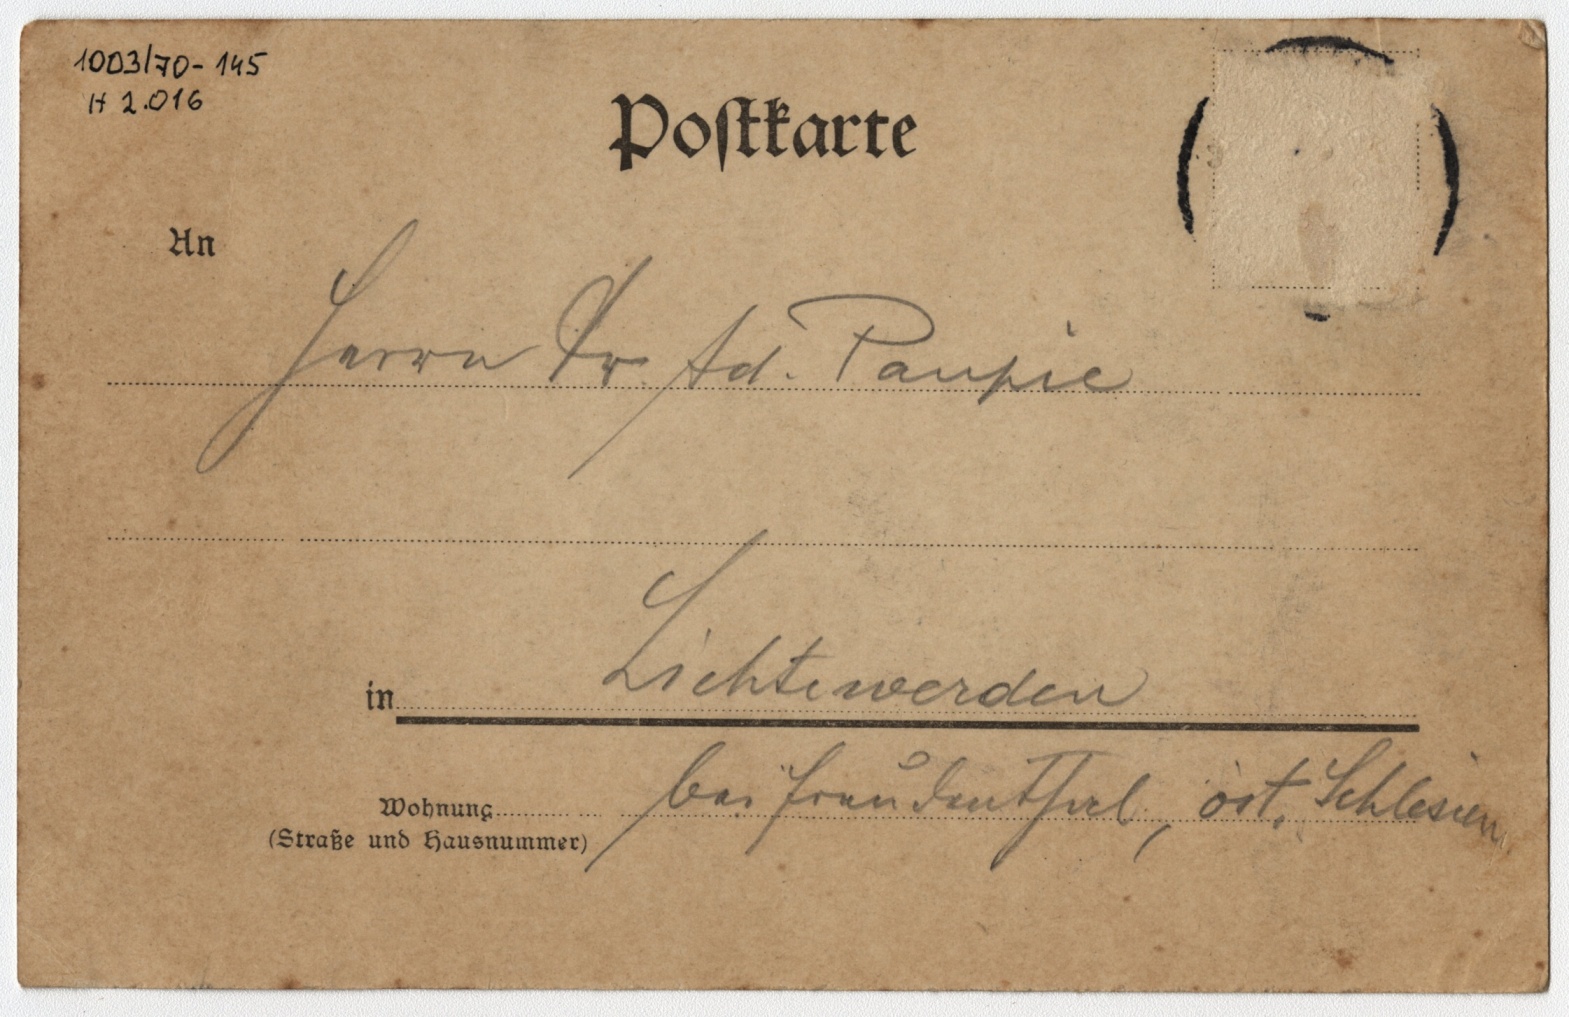 1003/70-145
H 2.016
Postkarte
An
Herrn Dr. Ad. Paupie
in Lichtewerden
Wohnung bei Freudenthal, öst. Schlesien
(Straße und Hausnummer)